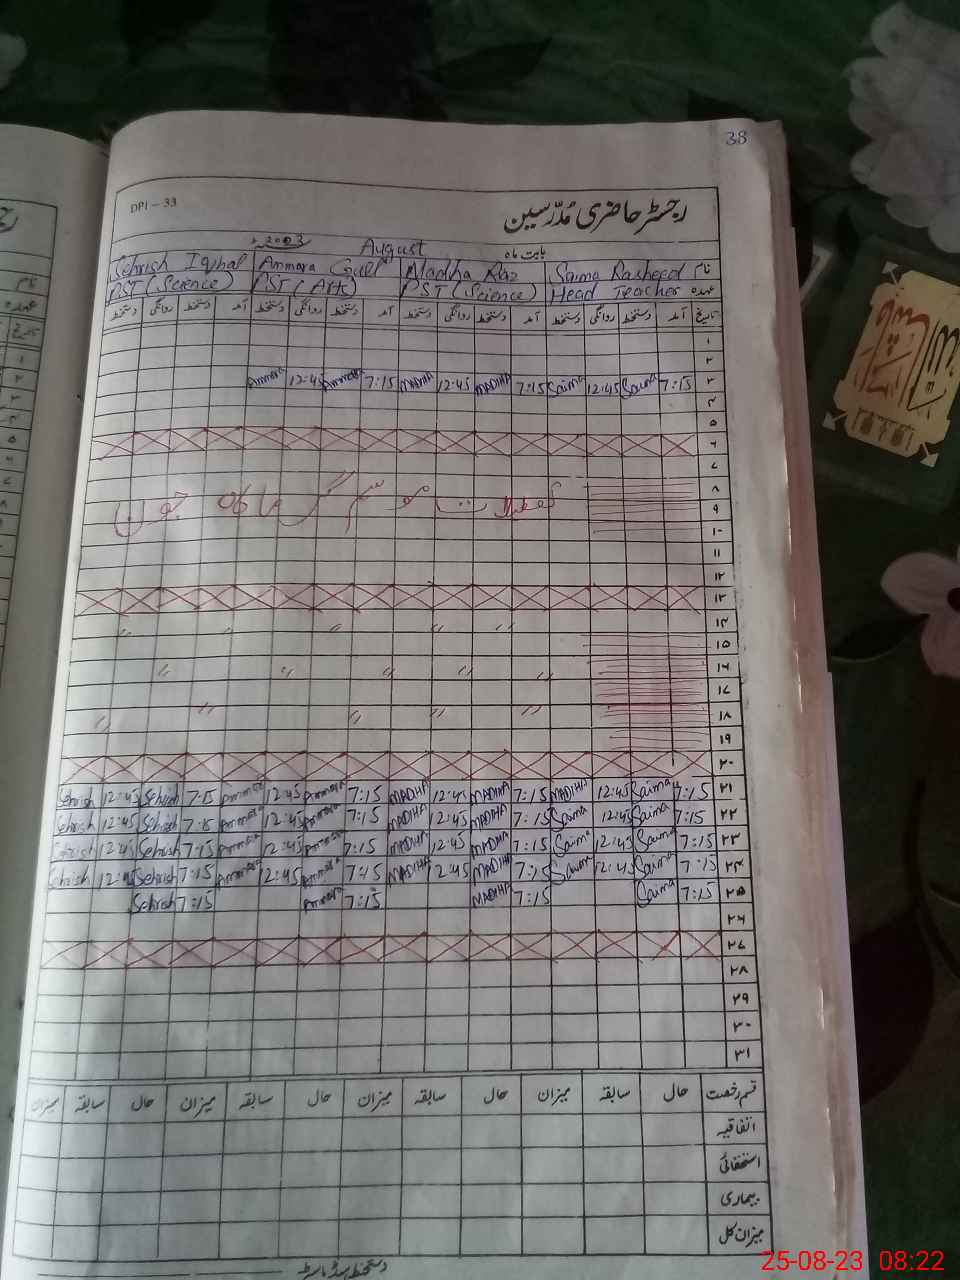 38
DPI - 33
رجسٹر حاضری مُدرّسین
بابت ماہ August 2023ء
نام Saima Rasheed Madha Riaz Ammara Gull Sehrish Iqbal
عہدہ Head Teacher PST (Science) PST (Arts) PST (Science)
تاریخ آمد دستخط روانگی دستخط آمد دستخط روانگی دستخط آمد دستخط روانگی دستخط آمد دستخط روانگی دستخط
۱
۲
۳ 7:15 Saima 12:45 Saima 7:15 MADIHA 12:45 MADIHA 7:15 Ammara 12:45 Ammara
۴
۵
۶
۷
۸
تعطیلات موسم گرما ماہ جون
۹
۱۰
۱۱
۱۲
۱۳
۱۴ 〃 〃 〃 〃 〃
۱۵
۱۶ 〃 〃 〃 〃 〃
۱۷
۱۸ 〃 〃 〃 〃 〃
۱۹
۲۰
۲۱ 7:15 Saima 12:45 MADIHA 7:15 MADIHA 12:45 MADIHA 7:15 Ammara 12:45 Ammara 7:15 Sehrish 12:45 Sehrish
۲۲ 7:15 Saima 12:45 Saima 7:15 MADIHA 12:45 MADIHA 7:15 Ammara 12:45 Ammara 7:15 Sehrish 12:45 Sehrish
۲۳ 7:15 Saima 12:45 Saima 7:15 MADIHA 12:45 MADIHA 7:15 Ammara 12:45 Ammara 7:15 Sehrish 12:45 Sehrish
۲۴ 7:15 Saima 12:45 Saima 7:15 MADIHA 12:45 MADIHA 7:15 Ammara 12:45 Ammara 7:15 Sehrish 12:45 Sehrish
۲۵ 7:15 Saima 7:15 MADIHA 7:15 Ammara 7:15 Sehrish
۲۶
۲۷
۲۸
۲۹
۳۰
۳۱
قسم رخصت حال سابقہ میزان حال سابقہ میزان حال سابقہ میزان حال سابقہ میزان
اتفاقیہ
استحقاقی
بیماری
میزان کل
دستخط ہیڈ ماسٹر
25-08-23 08:22